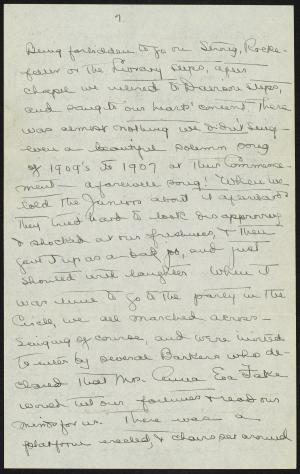 7.
Being forbidden to go on Strong, Rocke-
feller or the Library steps, after
chapel we went to Davison steps,
and sang to our hearts' content. There
was almost nothing we didn't sing -
even a beautiful solemn song
of 1909's to 1907 at their Commence-
ment - a farewell song! When we
told the Juniors about it afterwards
they tried hard to look disapproving
& shocked at our freshness, & then
gave it up as a bad job, and just
shouted with laughter. When it
was time to go to the party in the
Circle, we all marched across -
singing of course, and were invited
to enter by several Barkers who de-
clared that Mrs. Anna Eva Fake
would tell our fortunes & read our
minds for us. There was a
platform erected, & chairs set around